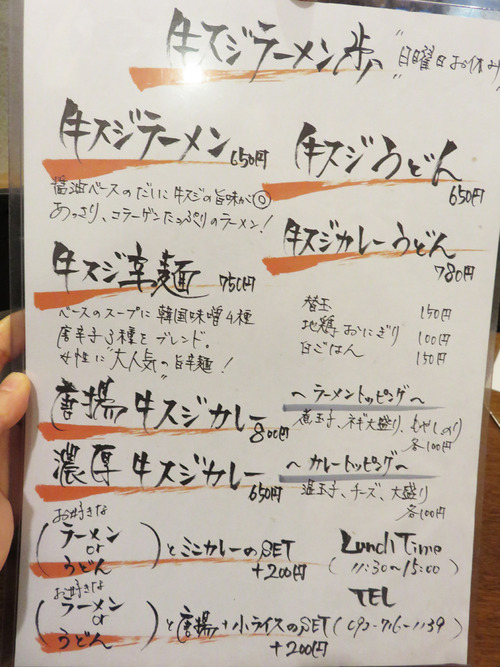 牛スジラーメン 歩
"日曜日お休み"
牛スジラーメン 650円
醤油ベースのだしに牛スジの旨味が◎
あっさり、コラーゲンたっぷりのラーメン!
牛スジ辛麺 750円
ベースのスープに韓国味噌4種
唐辛子3種をブレンド。
女性に"大人気"の旨辛麺!
牛スジうどん
650円
牛スジカレーうどん
780円
替玉 150円
地鶏おにぎり 100円
白ごはん 150円
唐揚牛スジカレー 800円
濃厚牛スジカレー 650円
〜ラーメントッピング〜
煮玉子、ネギ大盛り、もやし、のり
各100円
〜カレートッピング〜
温玉子、チーズ、大盛り
各100円
お好きな
(ラーメン
or
うどん)とミニカレーのSET
+200円
お好きな
(ラーメン
or
うどん)と唐揚+小ライスのSET
+200円
Lunch Time
(11:30〜15:00)
TEL
(092-716-1139)